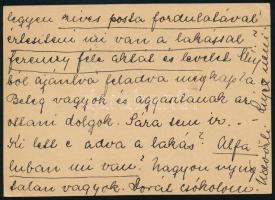 legyen szives posta fordultával
értesiteni mi van a lakással
Ferenczy féle aktát és levelet
ból ajánlva feladva megkap?a
Beteg vagyok és aggasztanak az
ottani dolgok. Sára sem ir...
Ki lett e adva a lakás? Alfa
luban mi van? Nagyon nyug
talan vagyok. Dorát csókolom